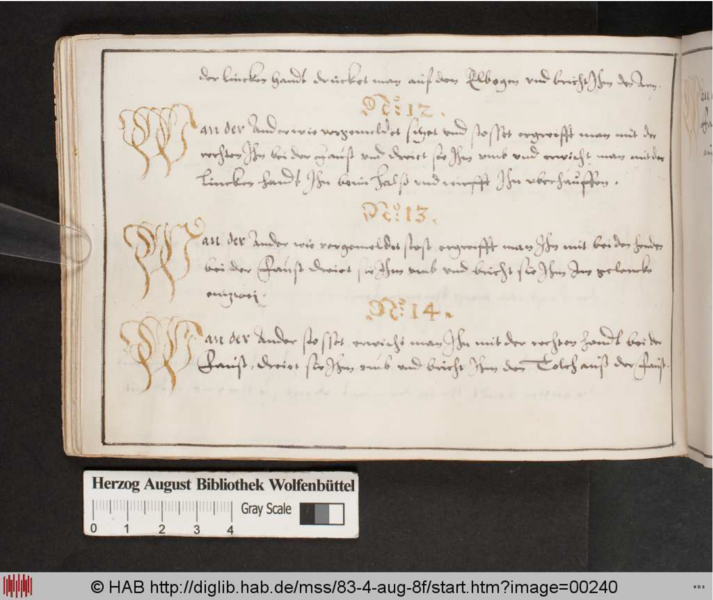 der lincken handt drucket man auf den Elbogen und bricht Ihm den Arm.
No: 12.
Wan der Ander wie vorgemeldet sitzet und stosset ergreifft man mit der
rechten Ihn bei der Faust und dreiet sie Ihm umb und erwischt man mit der
lincken handt Ihn beim halß und wirfft Ihn uberhauffen.
No: 13.
Wan der Ander wie vorgemeldet stost ergreifft man Ihn mit beiden henden
bei der Faust dreiet sie Ihm umb und bricht sie Ihm Im gelencke
entzwei.
No: 14.
Wan der Ander stosset erwischt man Ihn mit der rechten handt bei der
Faust, dreiet sie Ihm umb und bricht Ihm den Tolch auß der Faust.
Herzog August Bibliothek Wolfenbüttel
0 1 2 3 4
Gray Scale
© HAB http://diglib.hab.de/mss/83-4-aug-8f/start.htm?image=00240